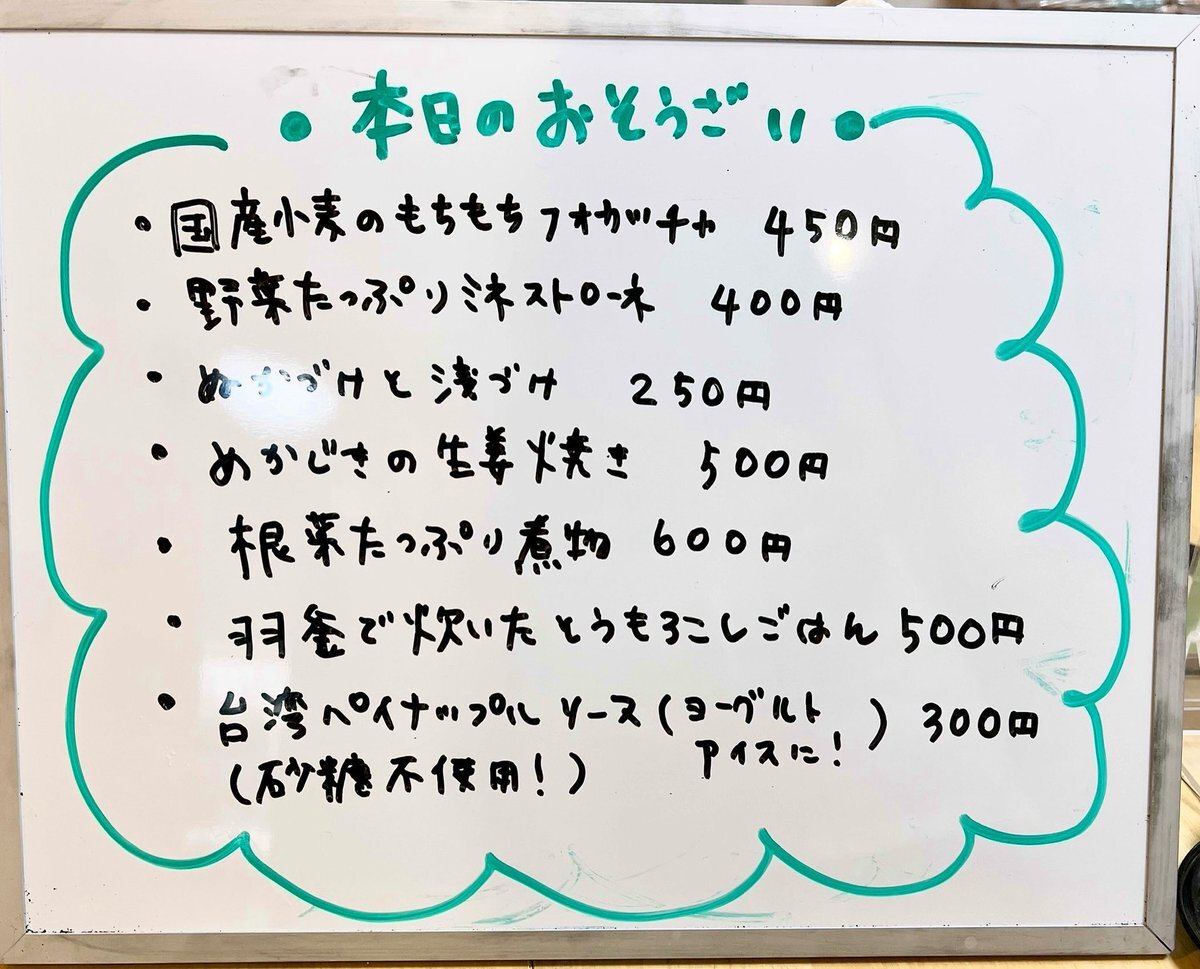 • 本日のおそうざい •
• 国産小麦のもちもちフォカッチャ 450円
• 野菜たっぷりミネストローネ 400円
• ぬかづけと浅づけ 250円
• めかじきの生姜焼き 500円
• 根菜たっぷり煮物 600円
• 羽釜で炊いたとうもろこしごはん 500円
• 台湾パイナップルソース(ヨーグルト アイスに!) 300円
(砂糖不使用!)